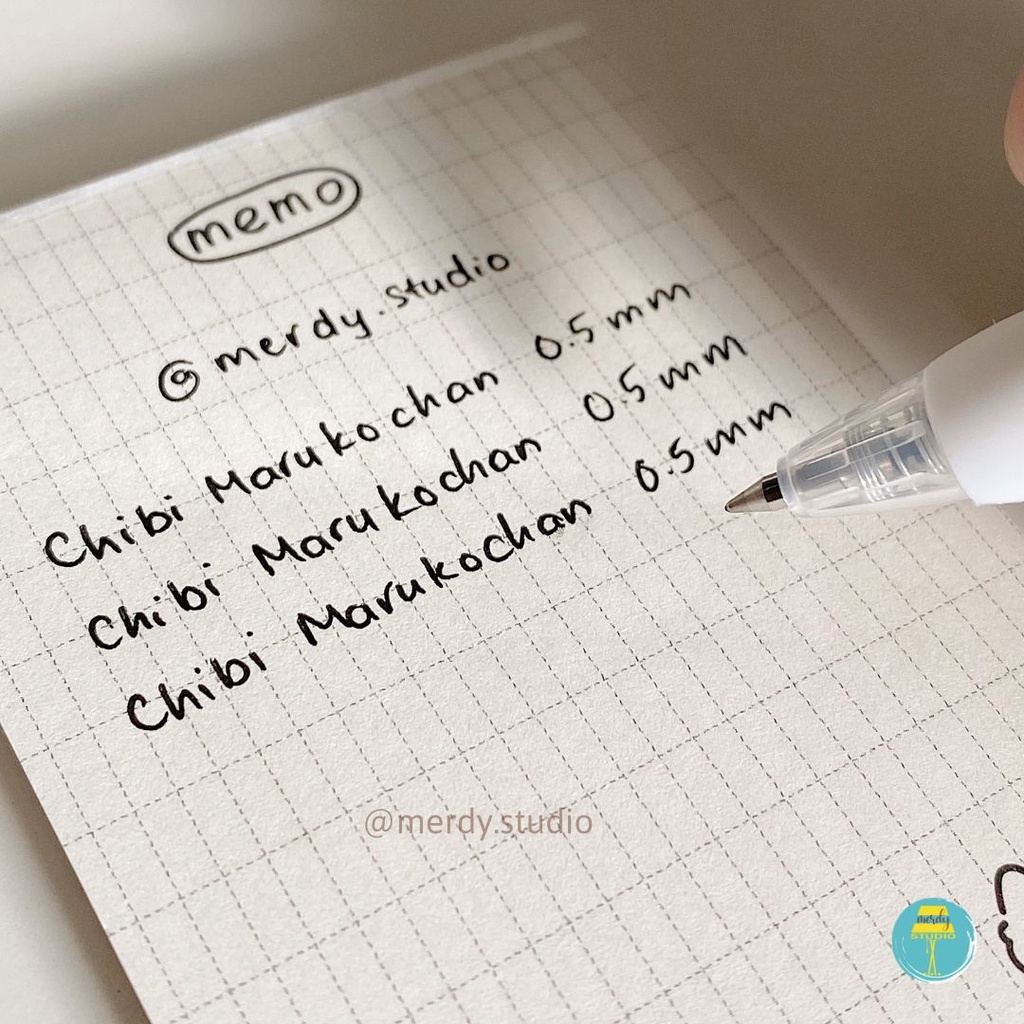 memo
@merdy.studio
Chibi Marukochan 0.5 mm
Chibi Marukochan 0.5 mm
Chibi Marukochan 0.5 mm
@merdy.studio
merdy
STUDIO